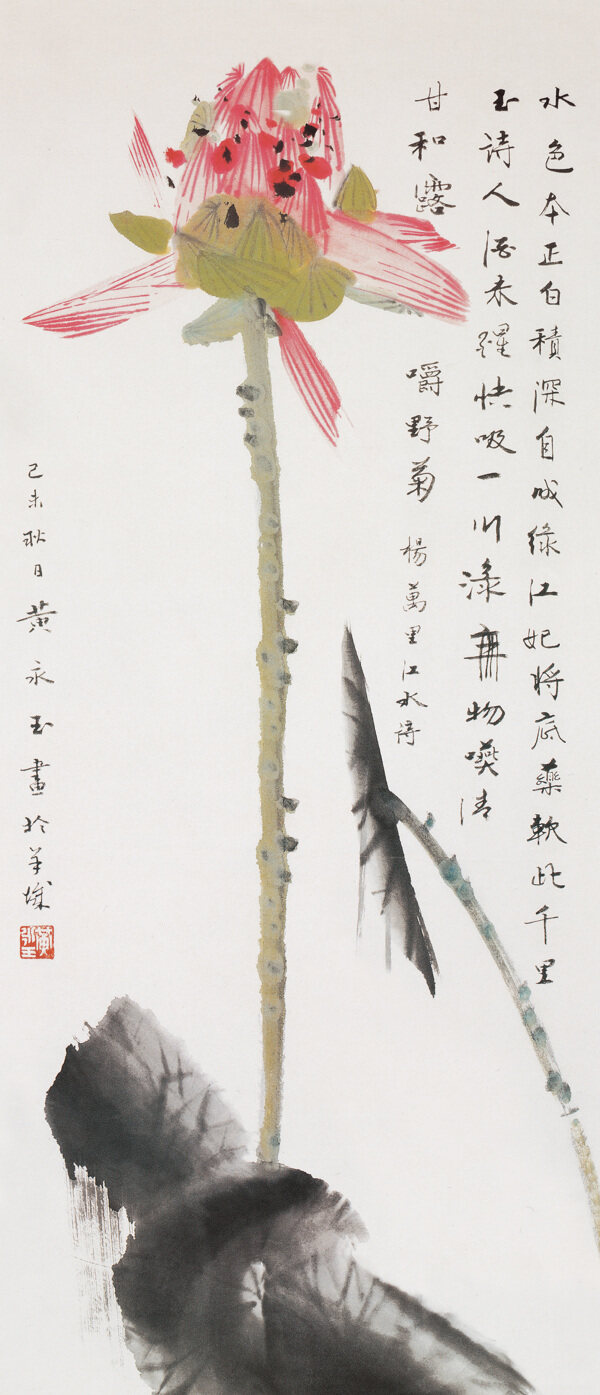 水色本正白積深自成綠江妃將底藥軟此千里
玉詩人酒未醒快吸一川淥無物嚥清
甘和露嚼野菊 楊萬里江水詩
己未秋日黃永玉畫於羊城
黃永玉